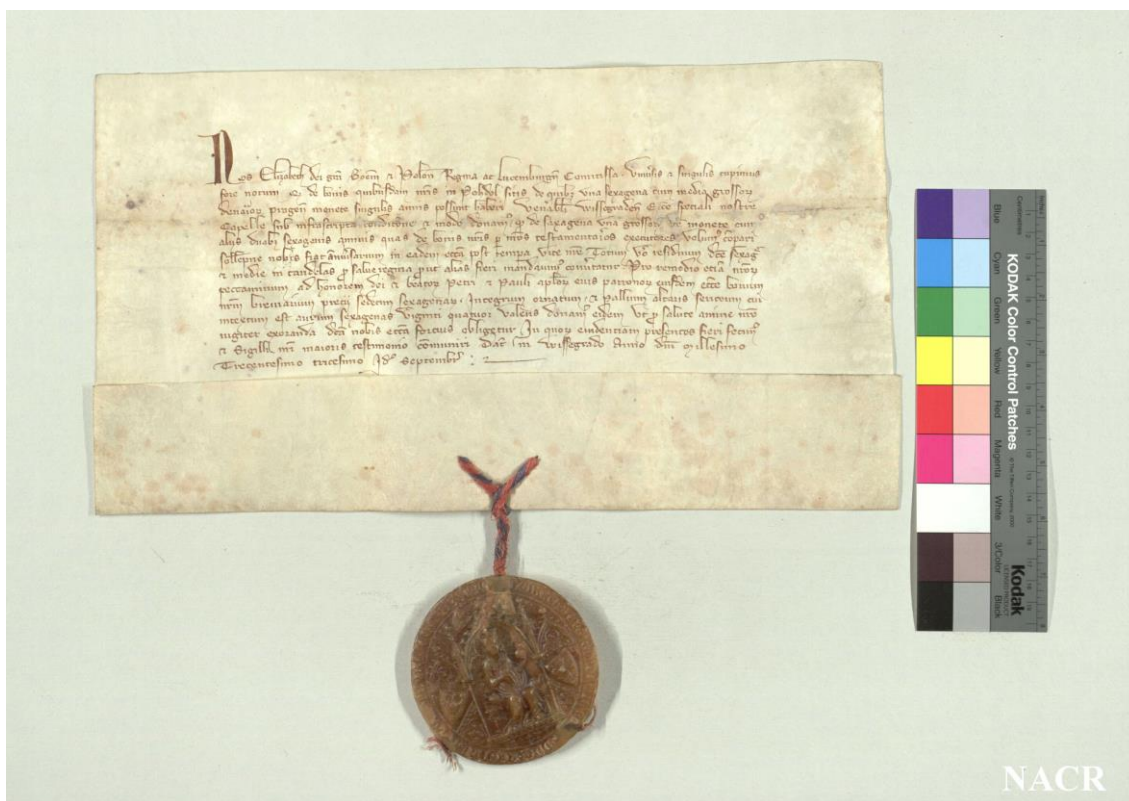 Nos Elizabeth dei gra Boem et Polon Regina ac Lucemburgn Comitissa Univsis et singulis cupimus
fore notum q de bonis quibusdam nris in sitis de quibz una sexagena cum media grossor
denarior pragen monete singulis annis possunt haberi venabili Wissegraden Ecce speciali nostre
Capelle sub infrascripta condicione et modo donam q de sexagena una grossor monete cum
aliis duabz sexagenis annuis quas de bonis nris p nros testamentarios executores volum
sollempne nobis fiat annisarium in eadem eccia post tempa vite nre Totum residuum dce sexag
et medie in candelas p salve regina put alias fieri mandavim convertatur Pro remedio etiam nror
peccaminum ad honorem dei et beator Petri et Pauli aplor eius patronor eiusdem eccie bonum
nrm breviarium precii sedecim sexagenar Integrum ornatum et Pallium altaris sericeum cui
intextum est aurum sexagenas viginti quatuor valens donam eidem Ut p salute anime nre
iugiter exoranda dca nobis eccia forcius obligetur In quor evidentiam presentes fieri fecim
et Sigilli nri maioris testimonio comuniri Dat in Wissegrado Anno dni Millesimo
Trecentesimo tricesimo Id Septembr
KODAK Color Control Patches
© The Tiffen Company, 2000
Kodak
LICENSED PRODUCT
Centimetres
Blue
Cyan
Green
Yellow
Red
Magenta
White
3/Color
Black
NACR